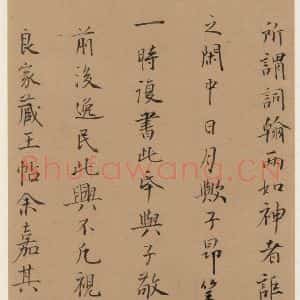 所謂詞翰兩如神者詎
之閑中日月歟子昂筆
一時復書此卷與子敬
前後逸民此興不凡視
良家藏王帖余嘉其
Shufawang.CN